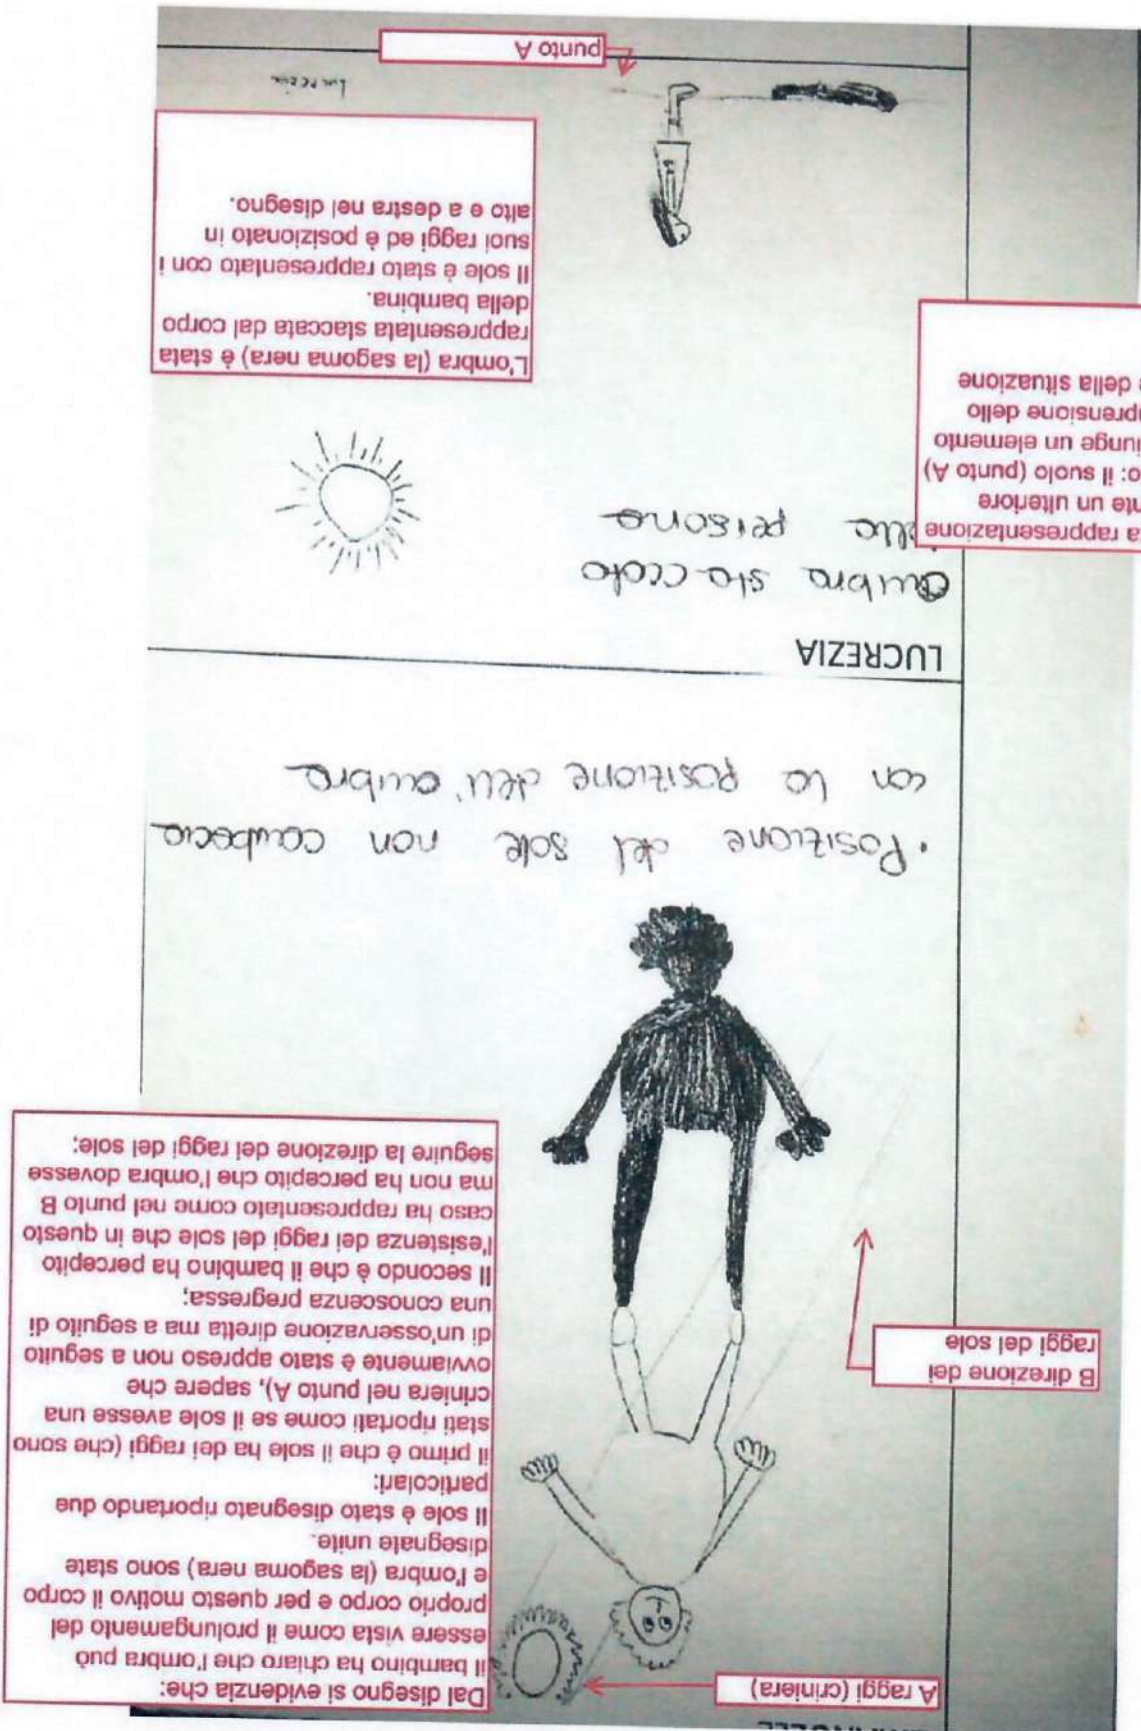 A raggi (criniera)
Dal disegno si evidenzia che:
il bambino ha chiaro che l'ombra può
essere vista come il prolungamento del
proprio corpo e per questo motivo il corpo
e l'ombra (la sagoma nera) sono state
disegnate unite.
Il sole è stato disegnato riportando due
particolari:
il primo è che il sole ha dei raggi (che sono
stati riportati come se il sole avesse una
criniera nel punto A), sapere che
ovviamente è stato appreso non a seguito
di un'osservazione diretta ma a seguito di
una conoscenza pregressa;
Il secondo è che il bambino ha percepito
l'esistenza dei raggi del sole che in questo
caso ha rappresentato come nel punto B
ma non ha percepito che l'ombra dovesse
seguire la direzione dei raggi del sole;
B direzione dei
raggi del sole
• Posizione del sole non combacia
con la posizione dell'ombra
LUCREZIA
Ombra staccata
dalla persona
rappresentazione
un ulteriore
il suolo (punto A)
un elemento
dello
della situazione
L'ombra (la sagoma nera) è stata
rappresentata staccata dal corpo
della bambina.
Il sole è stato rappresentato con i
suoi raggi ed è posizionato in
alto e a destra nel disegno.
Lucrezia
punto A